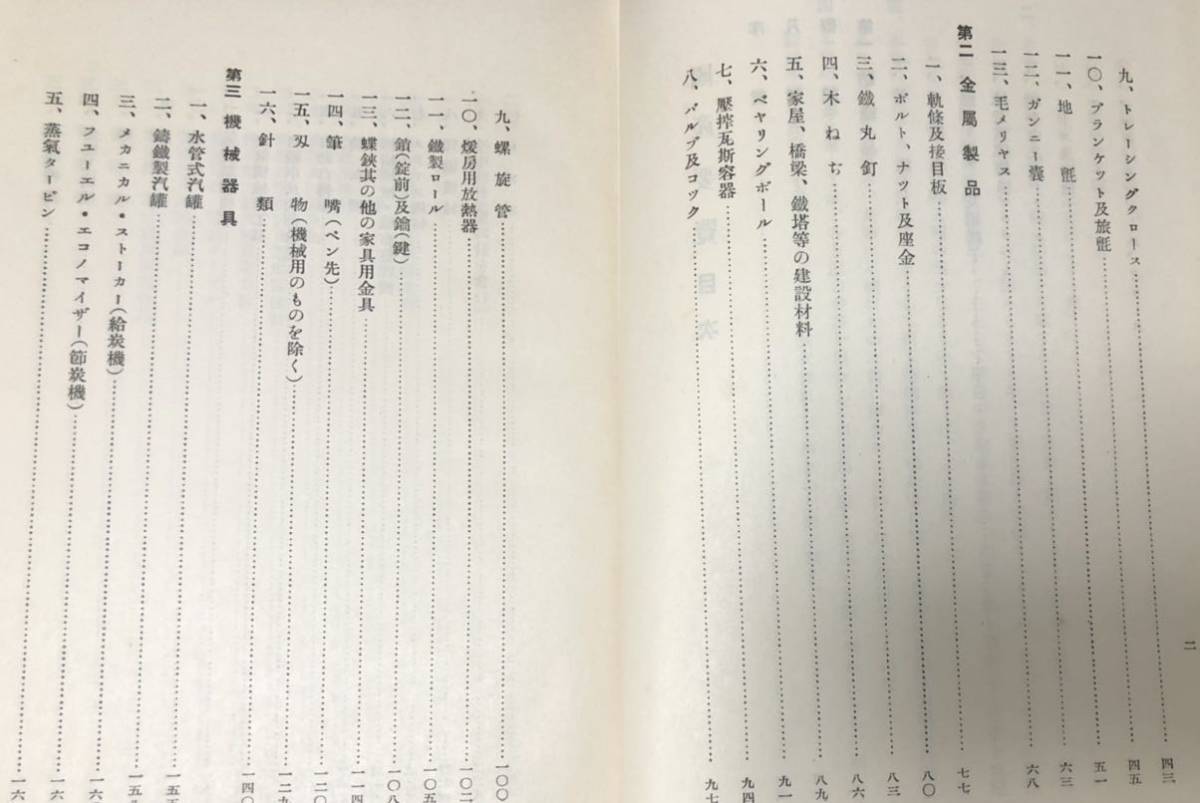 二
九、トレーシングクロース……四三
一〇、ブランケット及旅氈……四五
一一、地氈……五一
一二、ガンニー嚢……六三
一三、毛メリヤス……六八
第二 金屬製品
一、軌條及接目板……七七
二、ボルト、ナット及座金……八〇
三、鐵丸釘……八三
四、木ねぢ……八六
五、家屋、橋梁、鐵塔等の建設材料……八九
六、ベヤリングボール……九一
七、壓搾瓦斯容器……九四
八、バルブ及コック……九七
九、螺旋管……一〇〇
一〇、煖房用放熱器……一〇二
一一、鐵製ロール……一〇五
一二、鎖(錠前)及鑰(鍵)……一〇八
一三、蝶鋏其の他の家具用金具……一一四
一四、筆嘴(ペン先)……一二〇
一五、刄物(機械用のものを除く)……一二九
一六、針類……一四〇
第三 機械器具
一、水管式汽罐……一五
二、鑄鐵製汽罐……一五
三、メカニカル・ストーカー(給炭機)……一六
四、フユーエル・エコノマイザー(節炭機)……一六
五、蒸氣タービン……一六